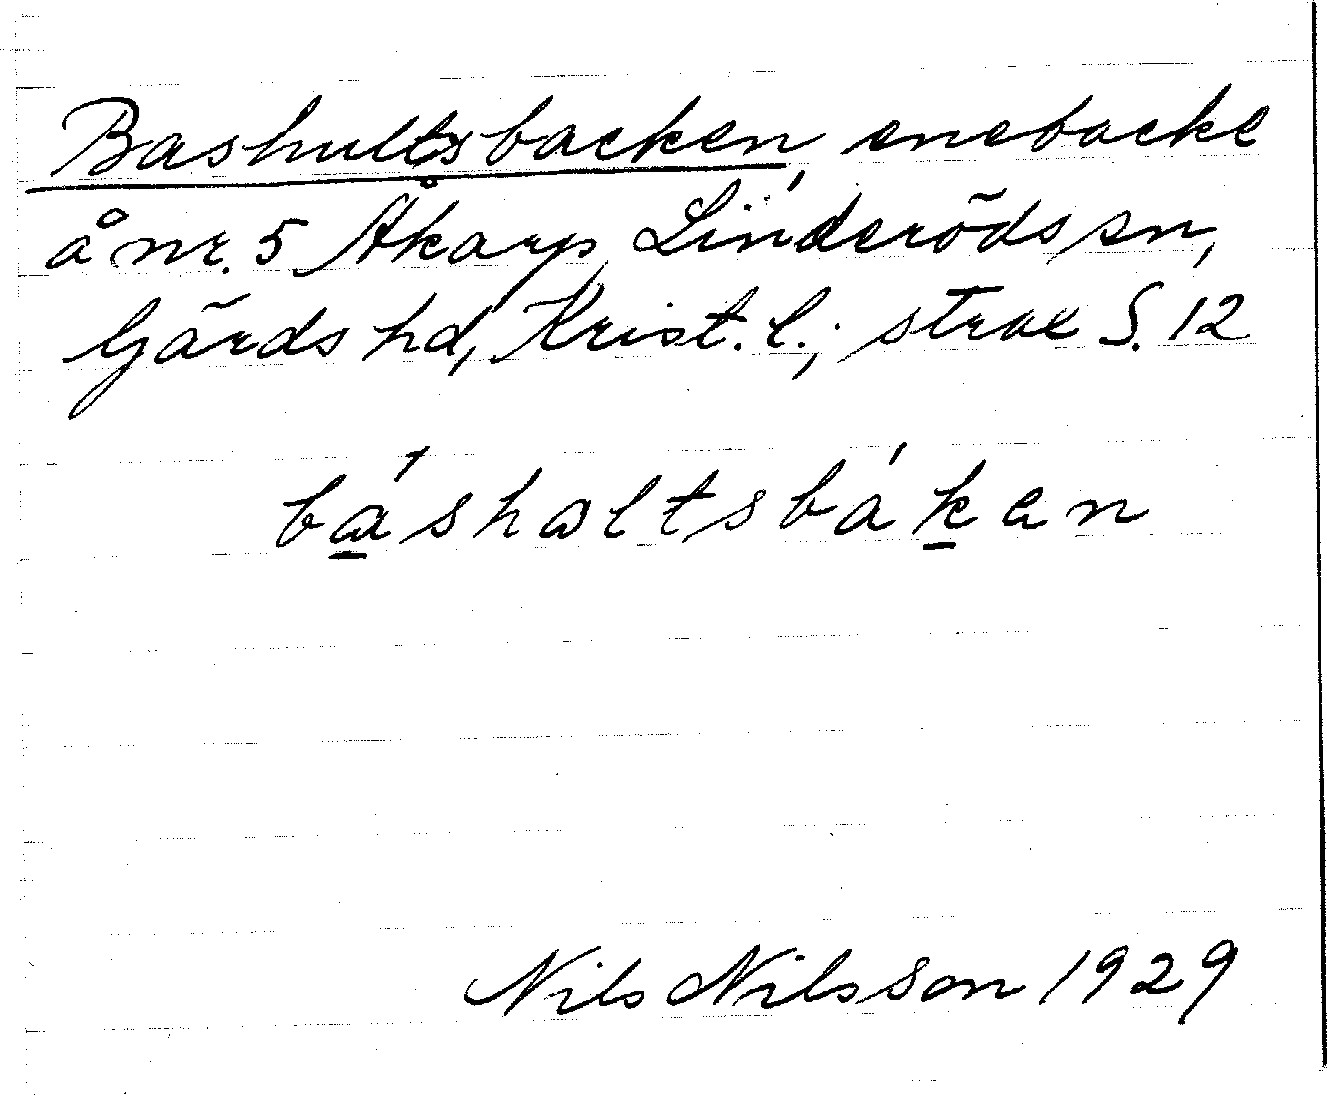 Bashultsbacken, enebacke
å nr. 5 Åkarp, Linderöds sn,
Gärds hd, Krist. l.; strax S. 12
báshaltsbáken
Nils Nilsson 1929